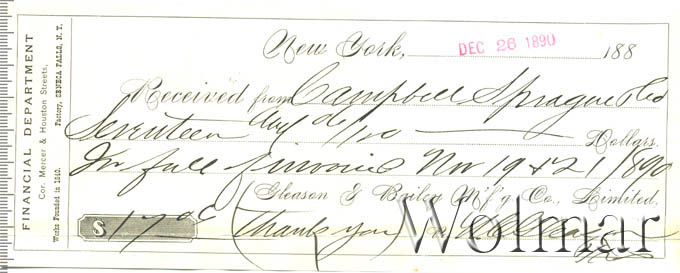 FINANCIAL DEPARTMENT
Cor. Mercer & Houston Streets,
Works Founded in 1840. Factory, SENECA FALLS, N. Y.
New York, DEC 26 1890 188
Received from Campbell Sprague & Co
Seventeen and 06/100 Dollars.
In full invoices Nov 19 & 21/1890
Gleason & Bailey M'f'g Co., Limited,
$ 17 06 (Thank you)
Wolmar